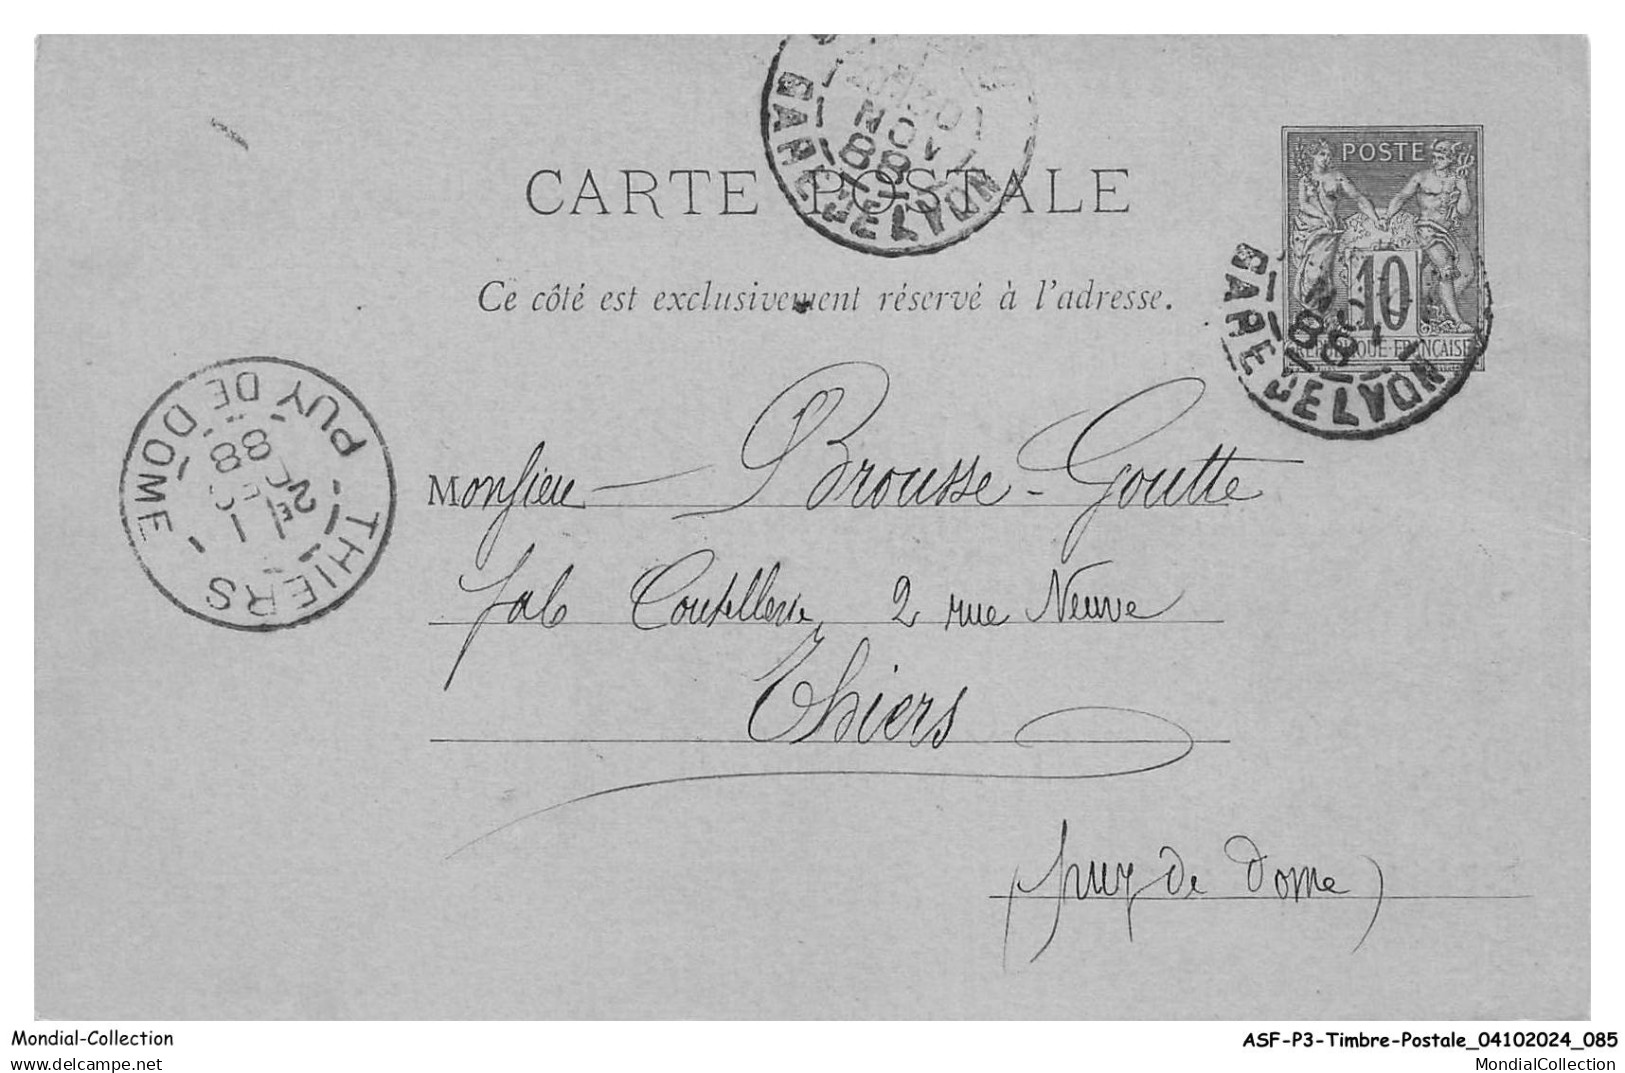 GARE DE LYON
NOV
88
CARTE POSTALE
POSTE
10
RÉPUBLIQUE FRANÇAISE
GARE DE LYON
NOV
88
Ce côté est exclusivement réservé à l'adresse.
THIERS
PUY DE DÔME
2E
1
DEC
88
Monsieur Brousse-Goutte
fab Coutellerie, 2 rue Neuve
Thiers
(puy de Dome)
Mondial-Collection
ASF-P3-Timbre-Postale_04102024_085
www.delcampe.net
MondialCollection